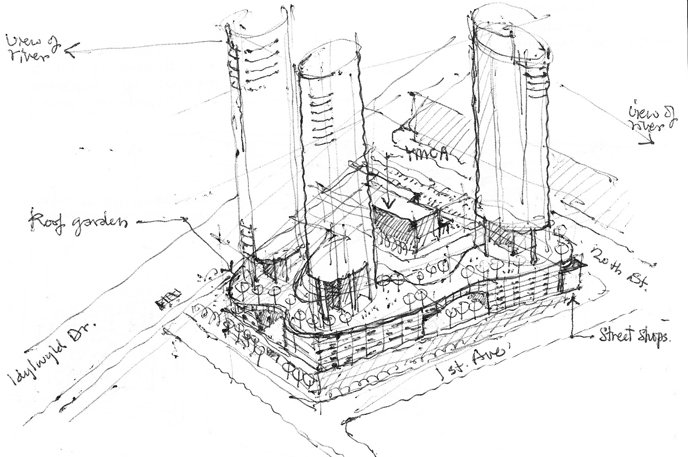 View of
river
View of
river
YMCA
Roof garden
20th St.
Idylwyld Dr.
Street Shops.
1st. Ave